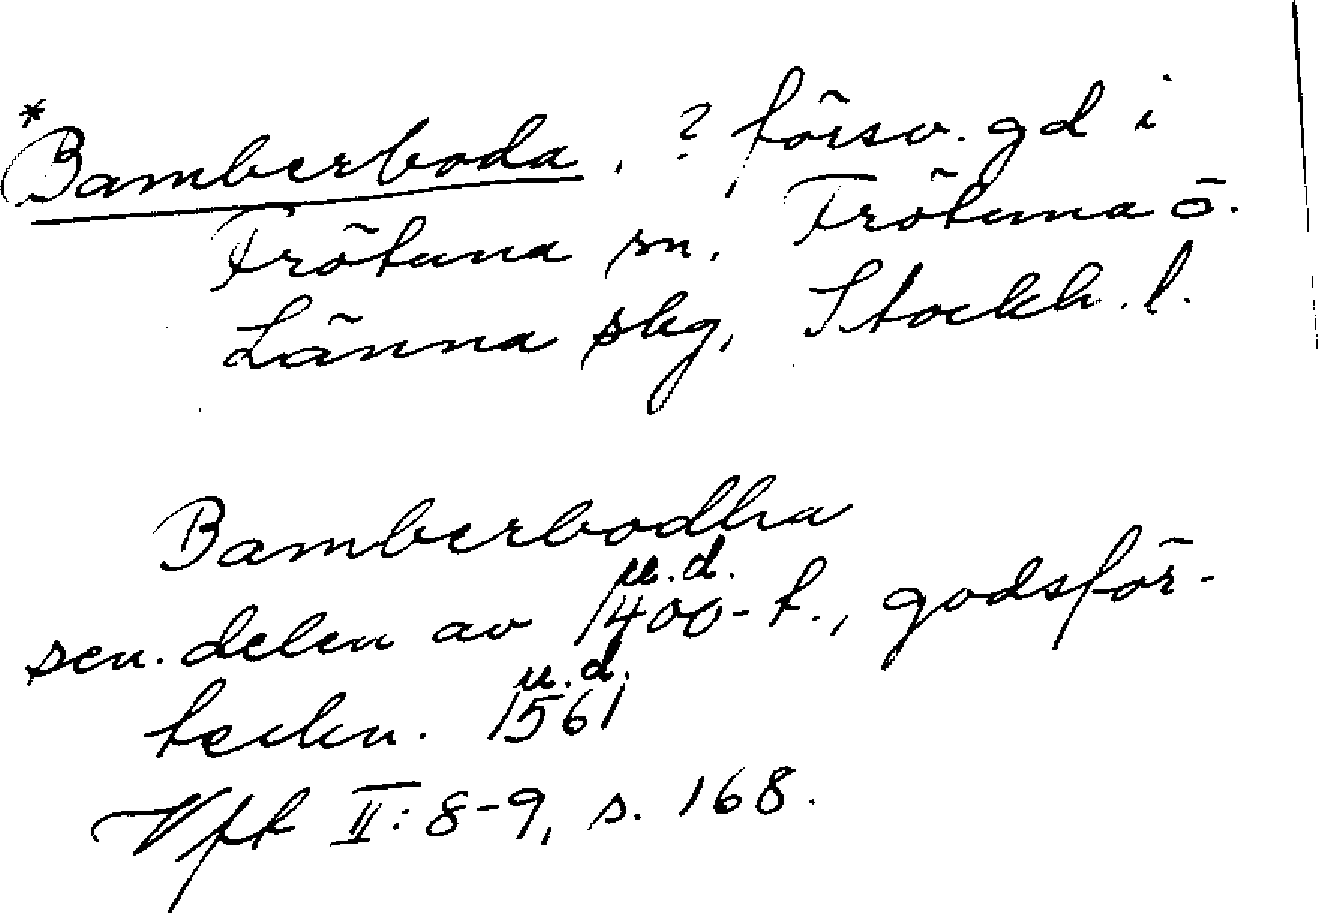 *Bamberboda, ? försv. gd i
Frötuna sn, Frötuna o.
Länna skg, Stockh. l.
Bamberbodha
u.d.
sen. delen av 1400-t., godsför-
u.d.
teckn. 1561
Vft II: 8-9, s. 168.